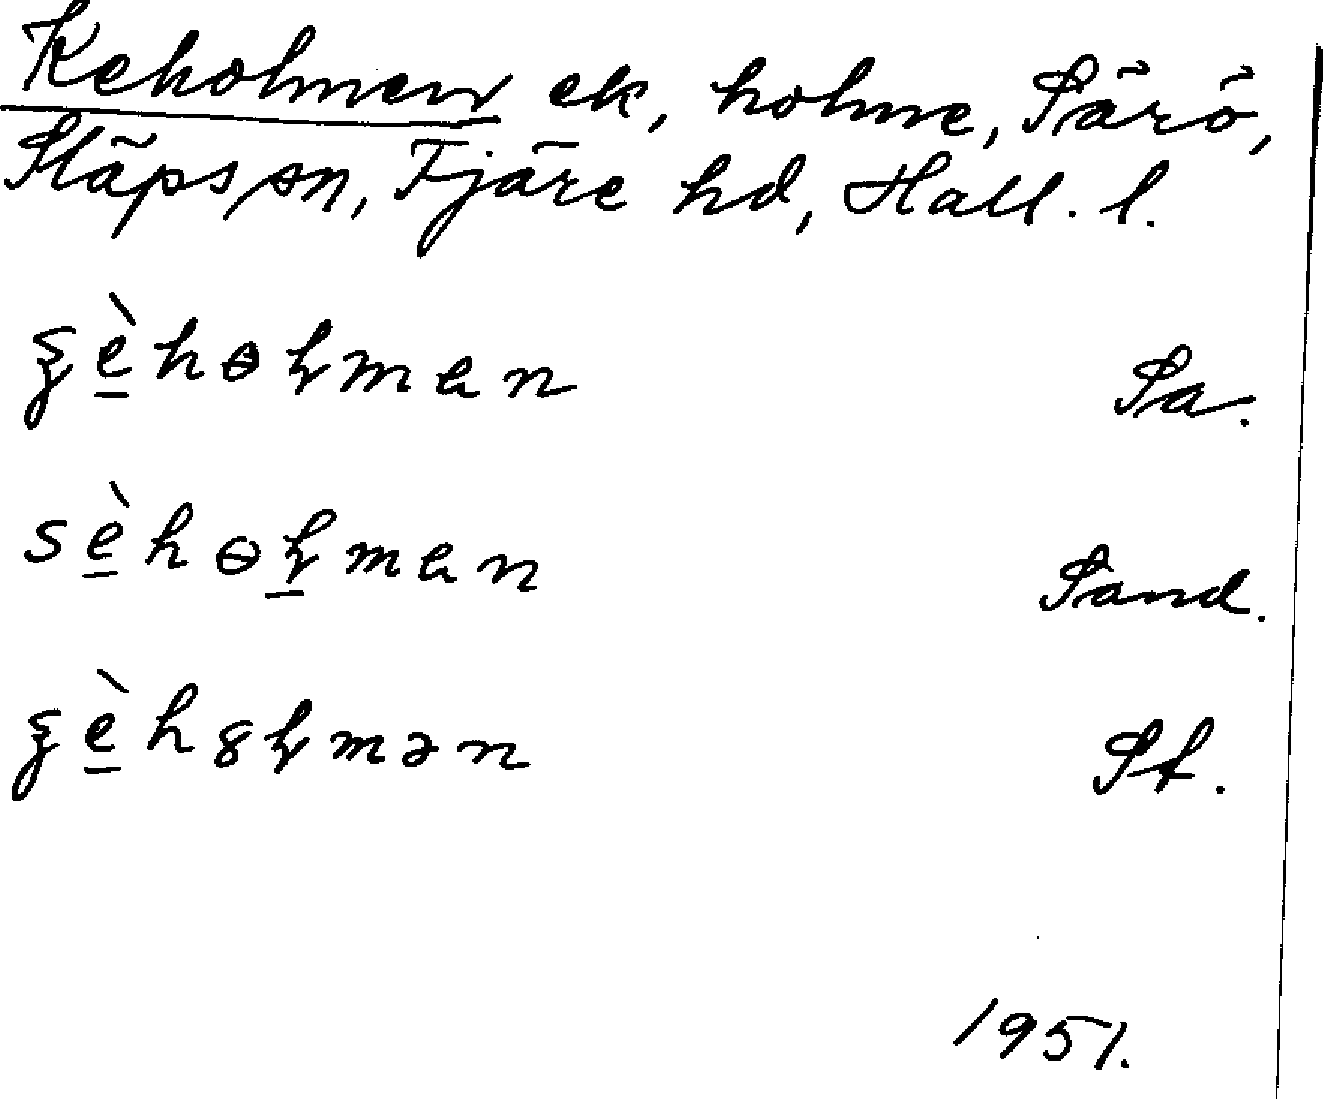 Keholmen ek, holme, Särö,
Släps sn, Fjäre hd, Hall. l.
ʂè̠hɵɫmen Sa.
sè̠hɵɫ̠men Sand.
ʂè̠h8ɫmən St.
1951.